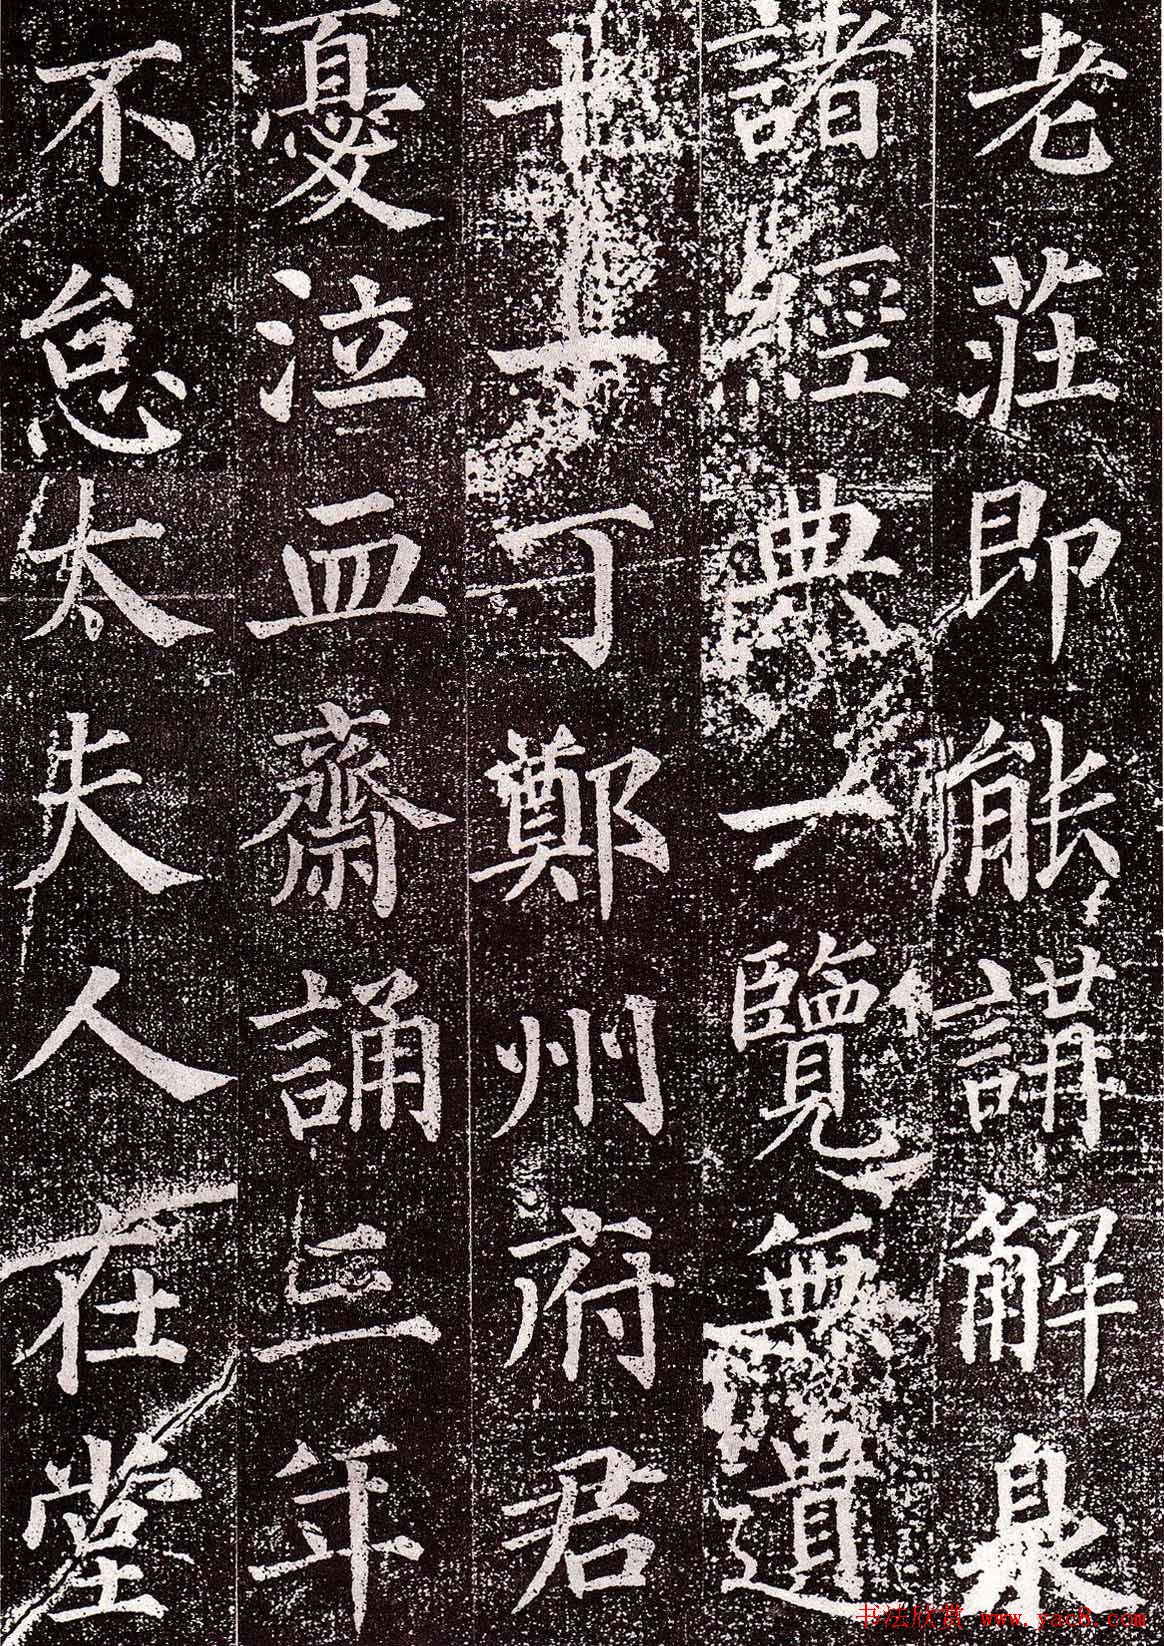 老莊即能講解臮
諸經典一覽無遺
十丁鄭州府君
憂泣血齋誦三年
不怠太夫人在堂
书法欣赏 www.yac8.com